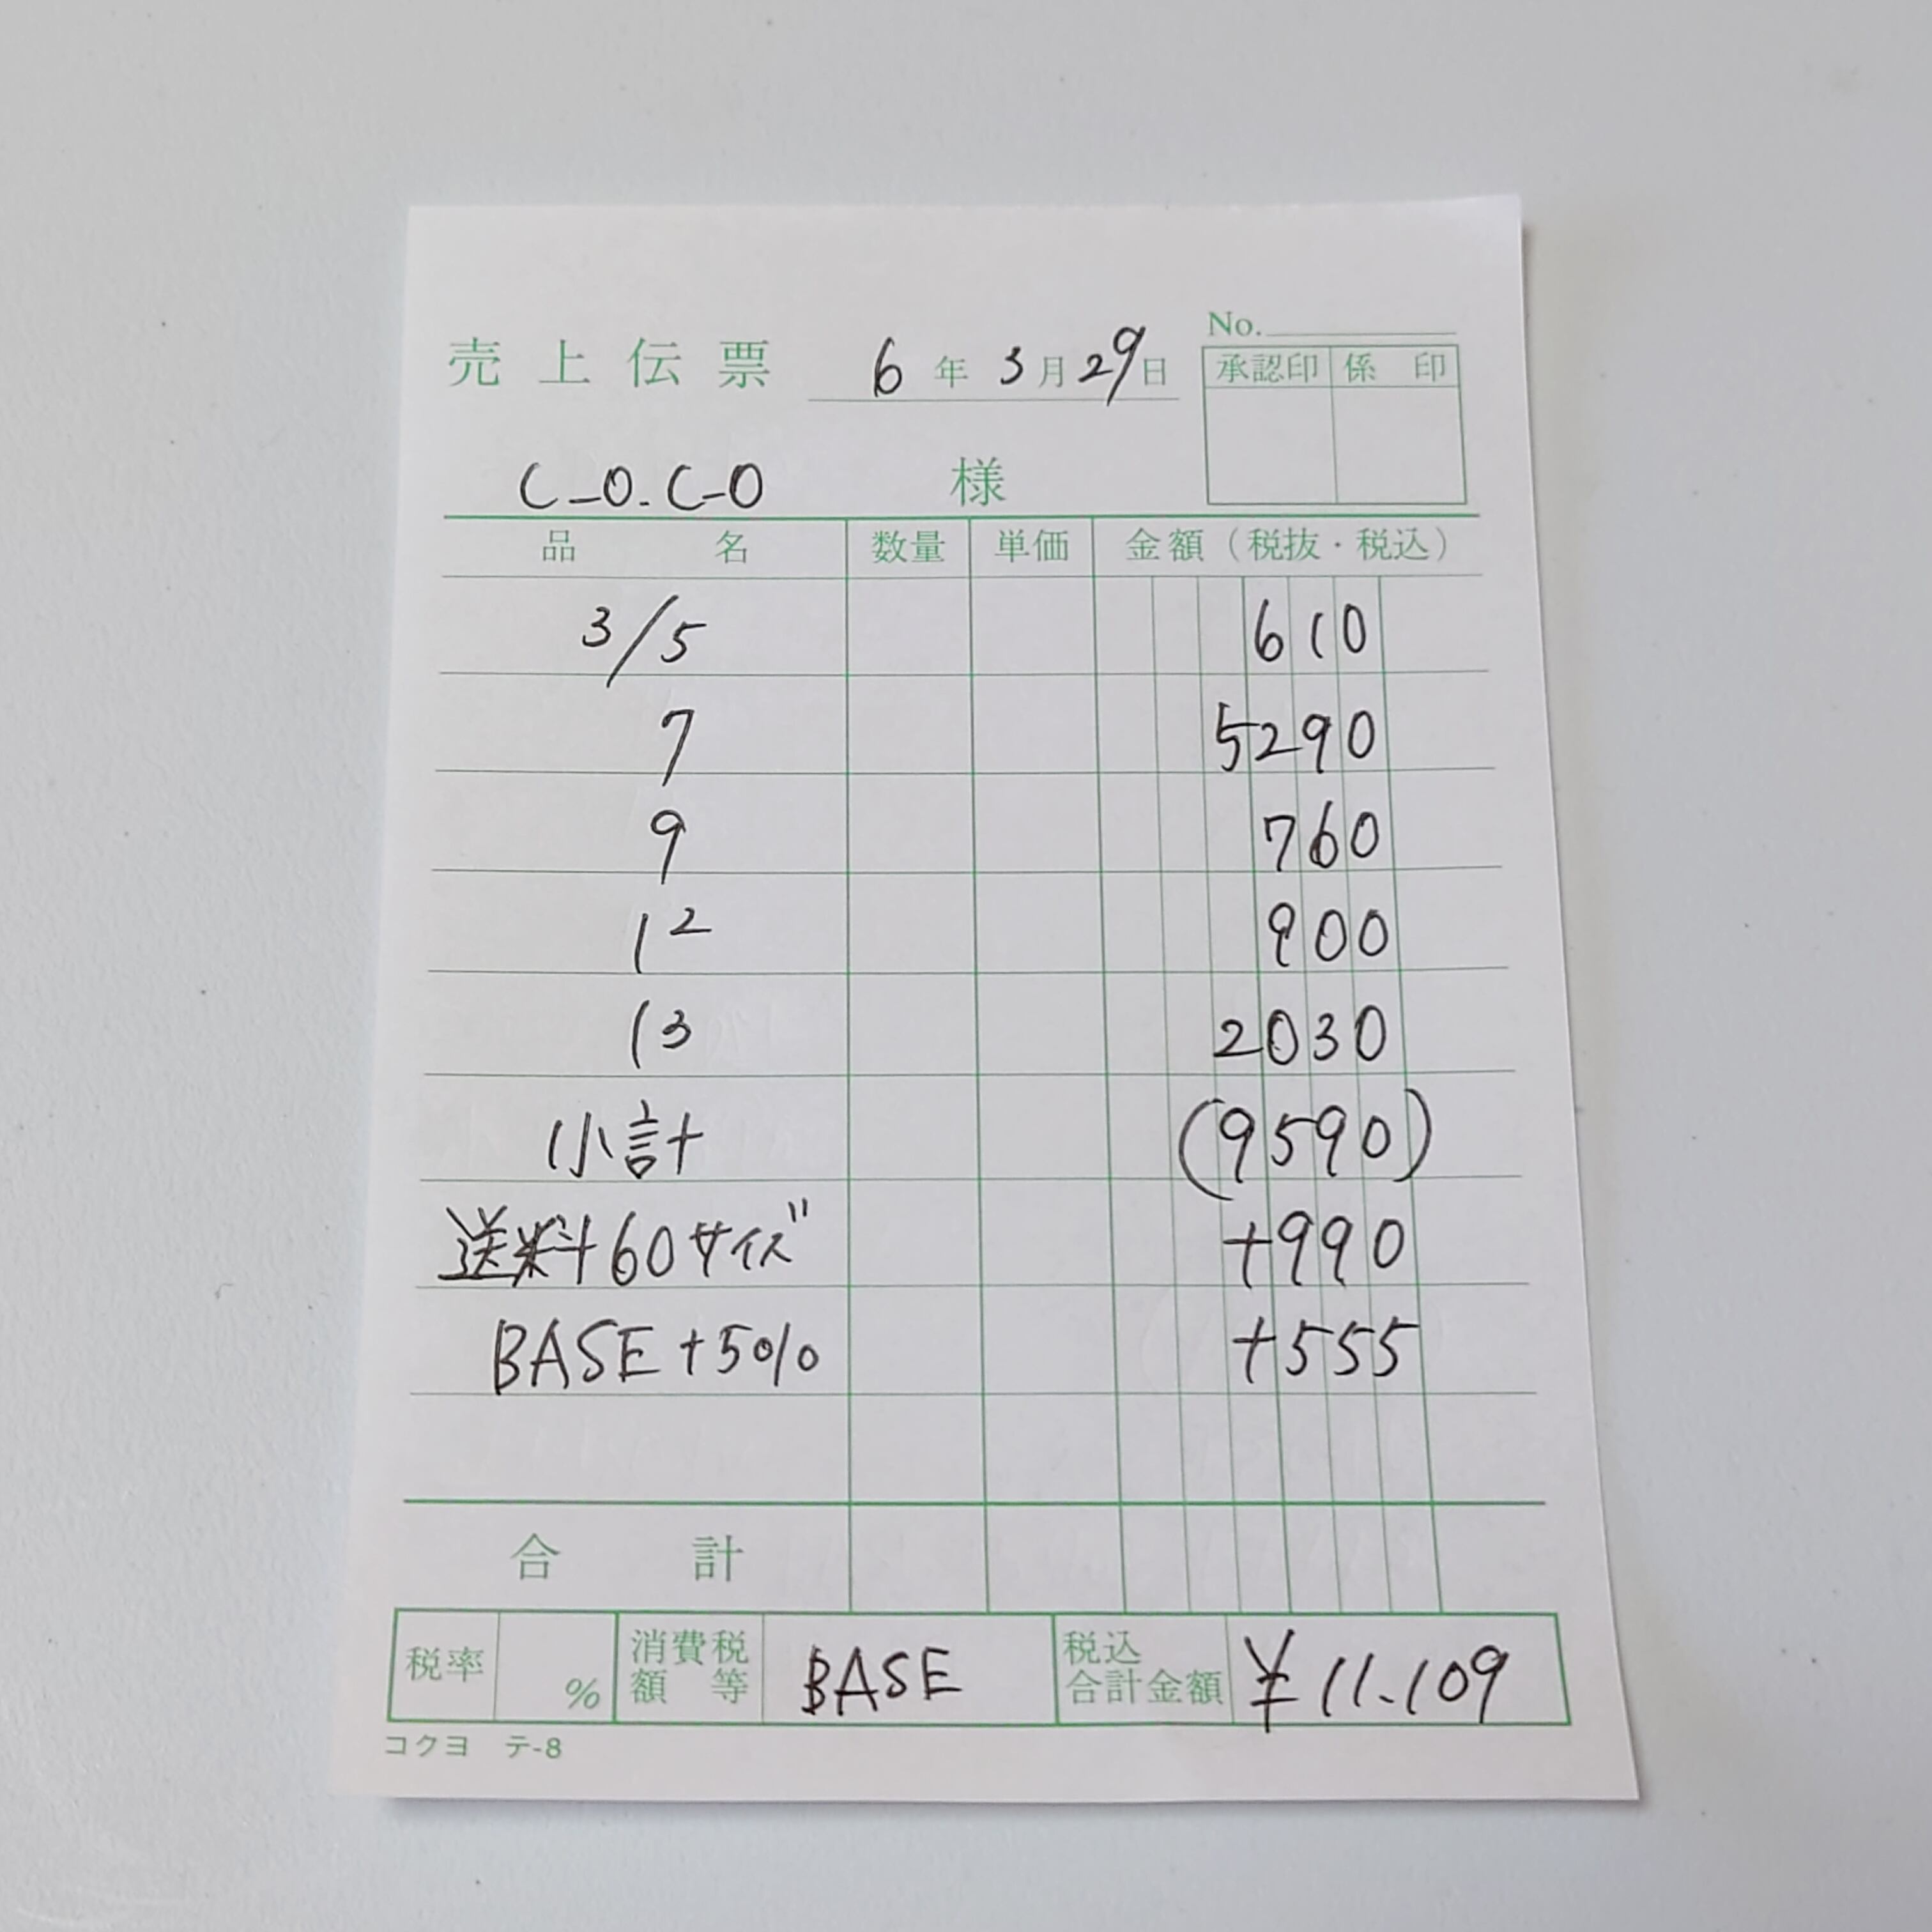 No.
売上伝票 6年3月29日
承認印 係印
C_O.C_O 様
品名 数量 単価 金額(税抜・税込)
3/5 610
7 5290
9 760
12 900
13 2030
小計 (9590)
送料60サイズ +990
BASE+5% +555
合計
税率 % 消費税額等 BASE 税込合計金額 ¥11.109
コクヨ テ-8